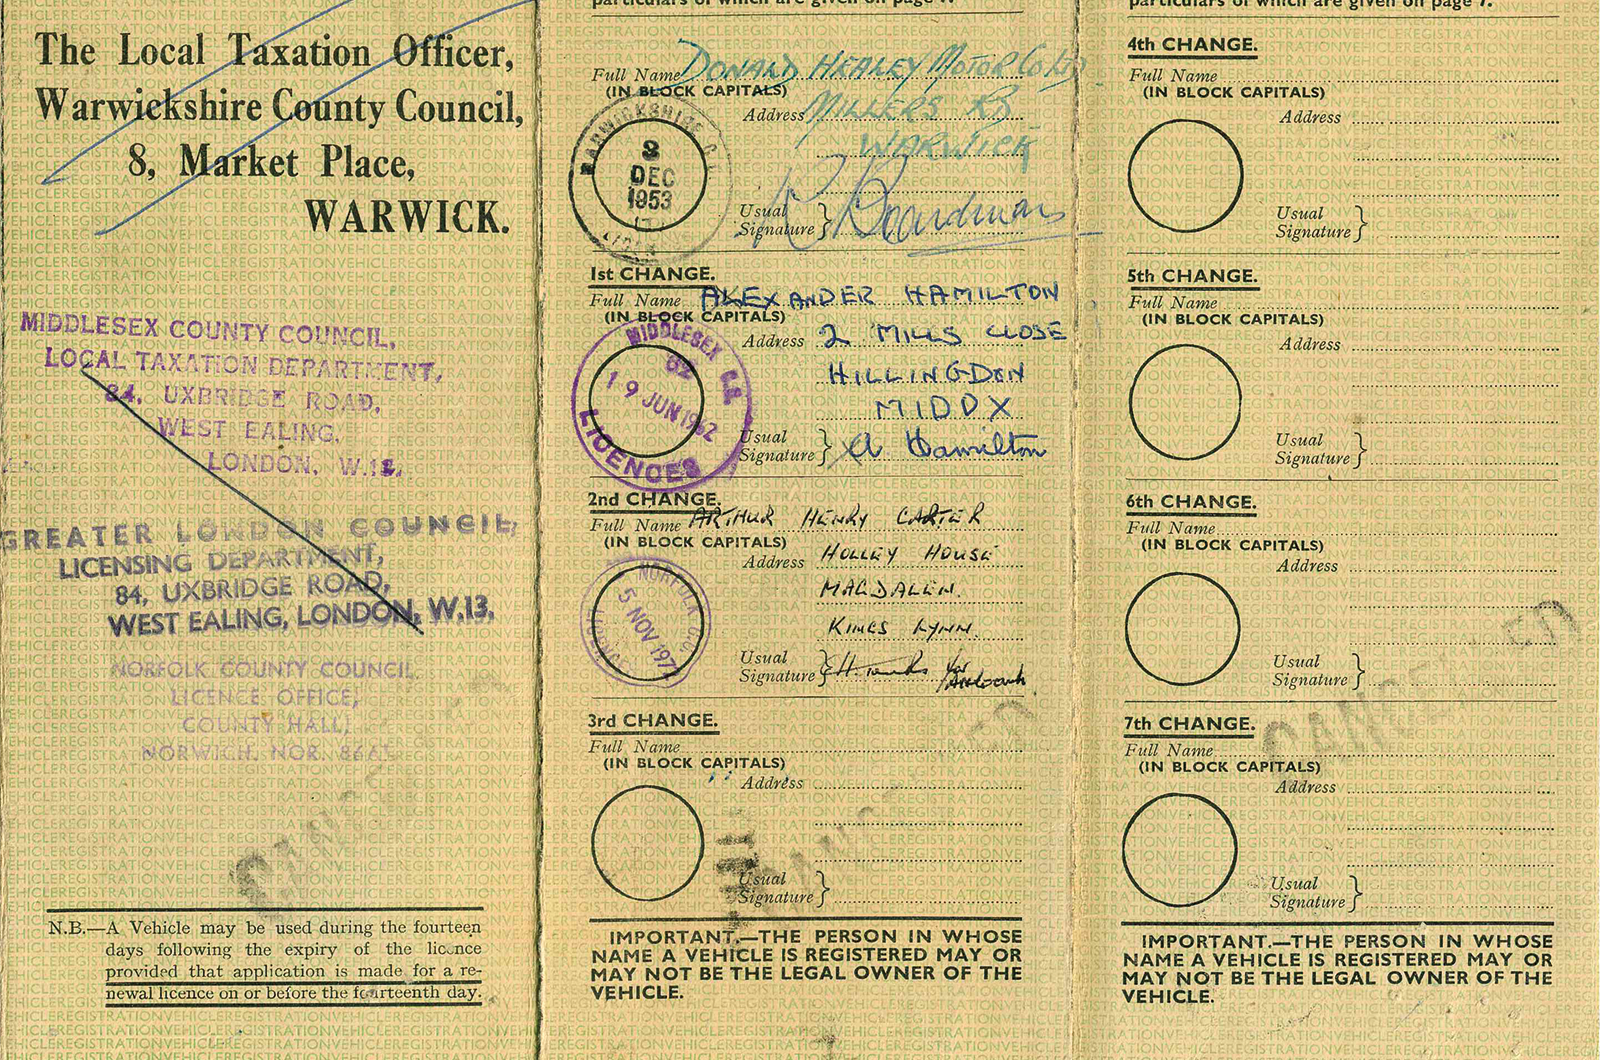 The Local Taxation Officer,
Warwickshire County Council,
8, Market Place,
WARWICK.
MIDDLESEX COUNTY COUNCIL,
LOCAL TAXATION DEPARTMENT,
84, UXBRIDGE ROAD,
WEST EALING,
LONDON, W.13.
GREATER LONDON COUNCIL,
LICENSING DEPARTMENT,
84, UXBRIDGE ROAD,
WEST EALING, LONDON, W.13.
NORFOLK COUNTY COUNCIL
LICENCE OFFICE,
COUNTY HALL,
NORWICH, NOR.
N.B.—A Vehicle may be used during the fourteen
days following the expiry of the licence
provided that application is made for a re-
newal licence on or before the fourteenth day.
particulars of which are given on page 7.
Full Name DONALD HEALEY MOTOR CO LTD
(IN BLOCK CAPITALS)
Address MILLERS RD
WARWICK
WARWICKSHIRE C.C.
3
DEC
1953
Usual
Signature } R Boardman
1st CHANGE.
Full Name ALEXANDER HAMILTON
(IN BLOCK CAPITALS)
Address 2 MILLS CLOSE
HILLINGDON
MIDDX
MIDDLESEX C.C.
62
19 JUN 1962
LICENCES
Usual
Signature } A Hamilton
2nd CHANGE.
Full Name ARTHUR HENRY CARTER
(IN BLOCK CAPITALS)
Address HOLLEY HOUSE
MAGDALEN.
KINGS LYNN.
NORFOLK C.C.
5 NOV 197
LICENCES
Usual
Signature }
3rd CHANGE.
Full Name
(IN BLOCK CAPITALS)
Address
Usual
Signature }
IMPORTANT.—THE PERSON IN WHOSE
NAME A VEHICLE IS REGISTERED MAY OR
MAY NOT BE THE LEGAL OWNER OF THE
VEHICLE.
particulars of which are given on page 7.
4th CHANGE.
Full Name
(IN BLOCK CAPITALS)
Address
Usual
Signature }
5th CHANGE.
Full Name
(IN BLOCK CAPITALS)
Address
Usual
Signature }
6th CHANGE.
Full Name
(IN BLOCK CAPITALS)
Address
Usual
Signature }
7th CHANGE.
Full Name
(IN BLOCK CAPITALS)
Address
Usual
Signature }
IMPORTANT.—THE PERSON IN WHOSE
NAME A VEHICLE IS REGISTERED MAY OR
MAY NOT BE THE LEGAL OWNER OF THE
VEHICLE.